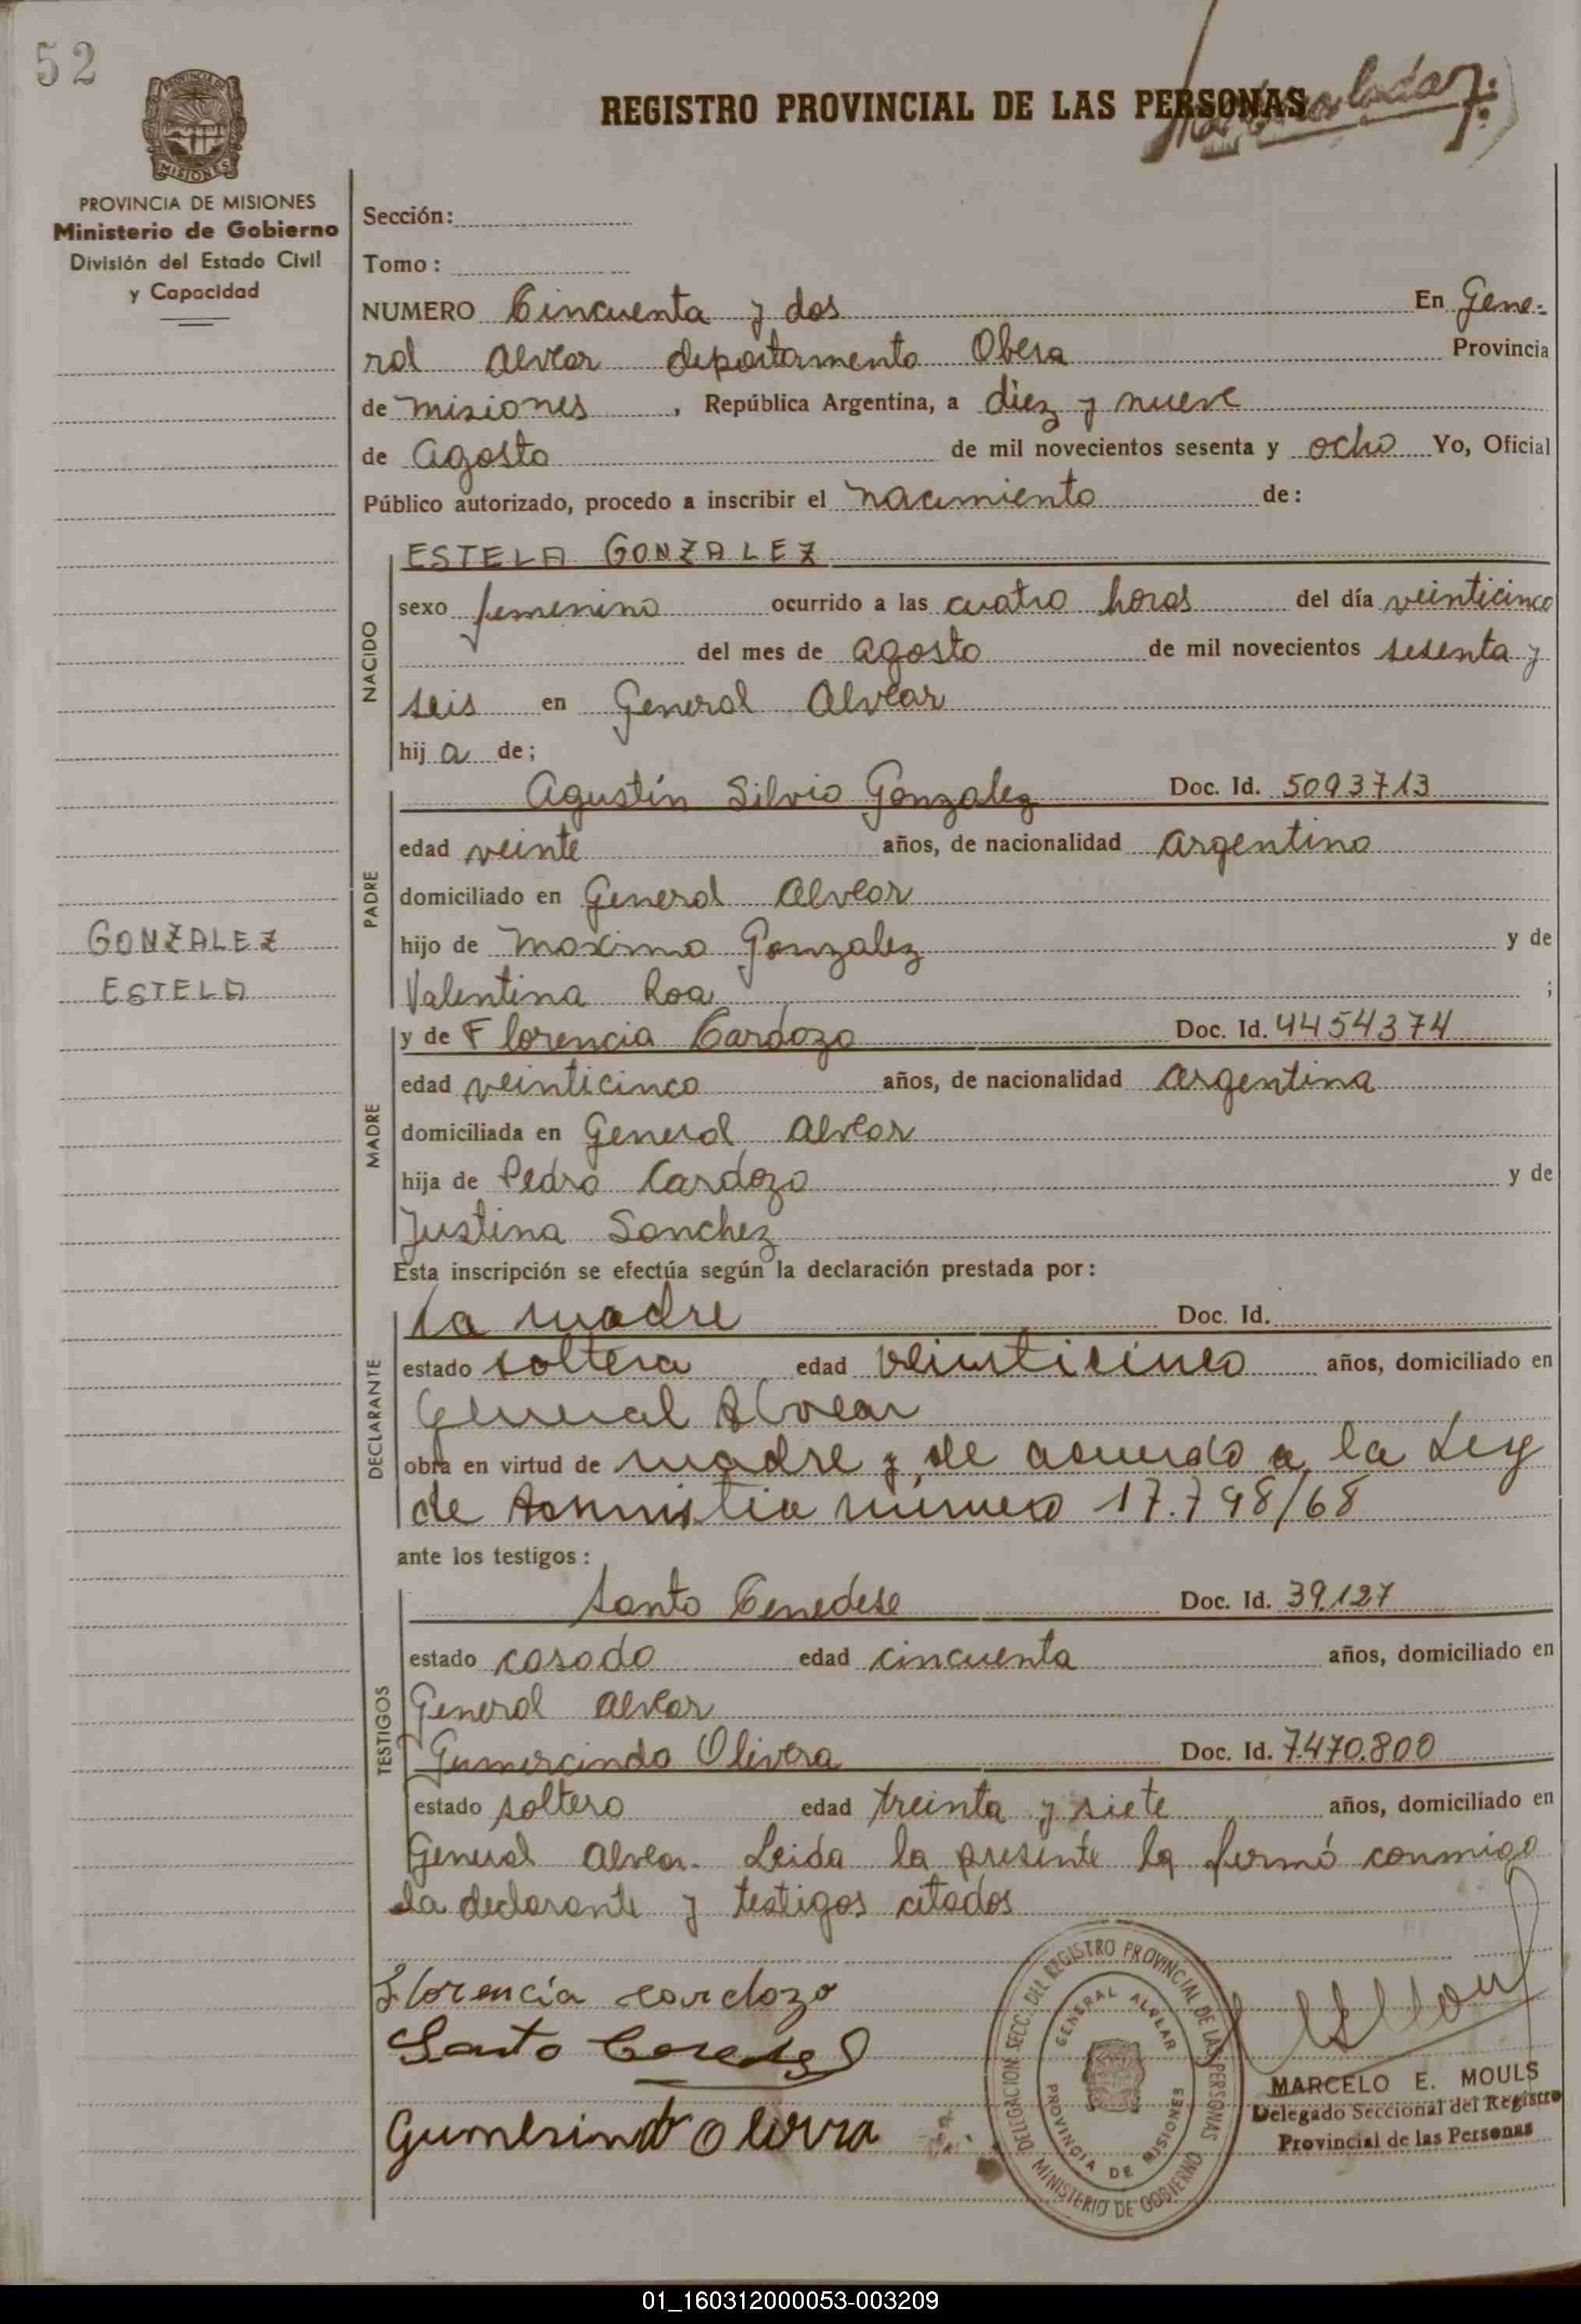 52
REGISTRO PROVINCIAL DE LAS PERSONAS
MISIONES
PROVINCIA DE MISIONES
Ministerio de Gobierno
División del Estado Civil
y Capacidad
Sección:
Tomo:
NUMERO Cincuenta y dos En Gene-
ral Alvear departamento Obera Provincia
de misiones, República Argentina, a diez y nueve
de agosto de mil novecientos sesenta y ocho Yo, Oficial
Público autorizado, procedo a inscribir el nacimiento de:
NACIDO
ESTELA GONZALEZ
sexo femenino ocurrido a las cuatro horas del día veinticinco
del mes de agosto de mil novecientos sesenta y
seis en General Alvear
hij a de;
PADRE
Agustín Silvio Gonzalez Doc. Id. 5093713
edad veinte años, de nacionalidad argentino
domiciliado en General Alvear
hijo de Maximo Gonzalez y de
Valentina Roa ;
GONZALEZ
ESTELA
MADRE
y de Florencia Cardozo Doc. Id. 4454374
edad veinticinco años, de nacionalidad argentina
domiciliada en General Alvear
hija de Pedro Cardozo y de
Justina Sanchez
Esta inscripción se efectúa según la declaración prestada por:
DECLARANTE
La madre Doc. Id.
estado soltera edad veinticinco años, domiciliado en
General Alvear
obra en virtud de madre y de acuerdo a la Ley
de Amnistia número 17.798/68
ante los testigos:
TESTIGOS
Santo Cenedese Doc. Id. 39.127
estado casado edad cincuenta años, domiciliado en
General Alvear
Gumercindo Olivera Doc. Id. 7.470.800
estado soltero edad treinta y siete años, domiciliado en
General Alvear. Leida la presente la firmó conmigo
la declarante y testigos citados
Florencia cardozo
Santo
Gumersindo Olivera
DELEGACION SECC. DEL REGISTRO PROVINCIAL DE LAS PERSONAS
GENERAL ALVEAR
PROVINCIA DE MISIONES
MINISTERIO DE GOBIERNO
MARCELO E. MOULS
Delegado Seccional del Registro
Provincial de las Personas
01_160312000053-003209